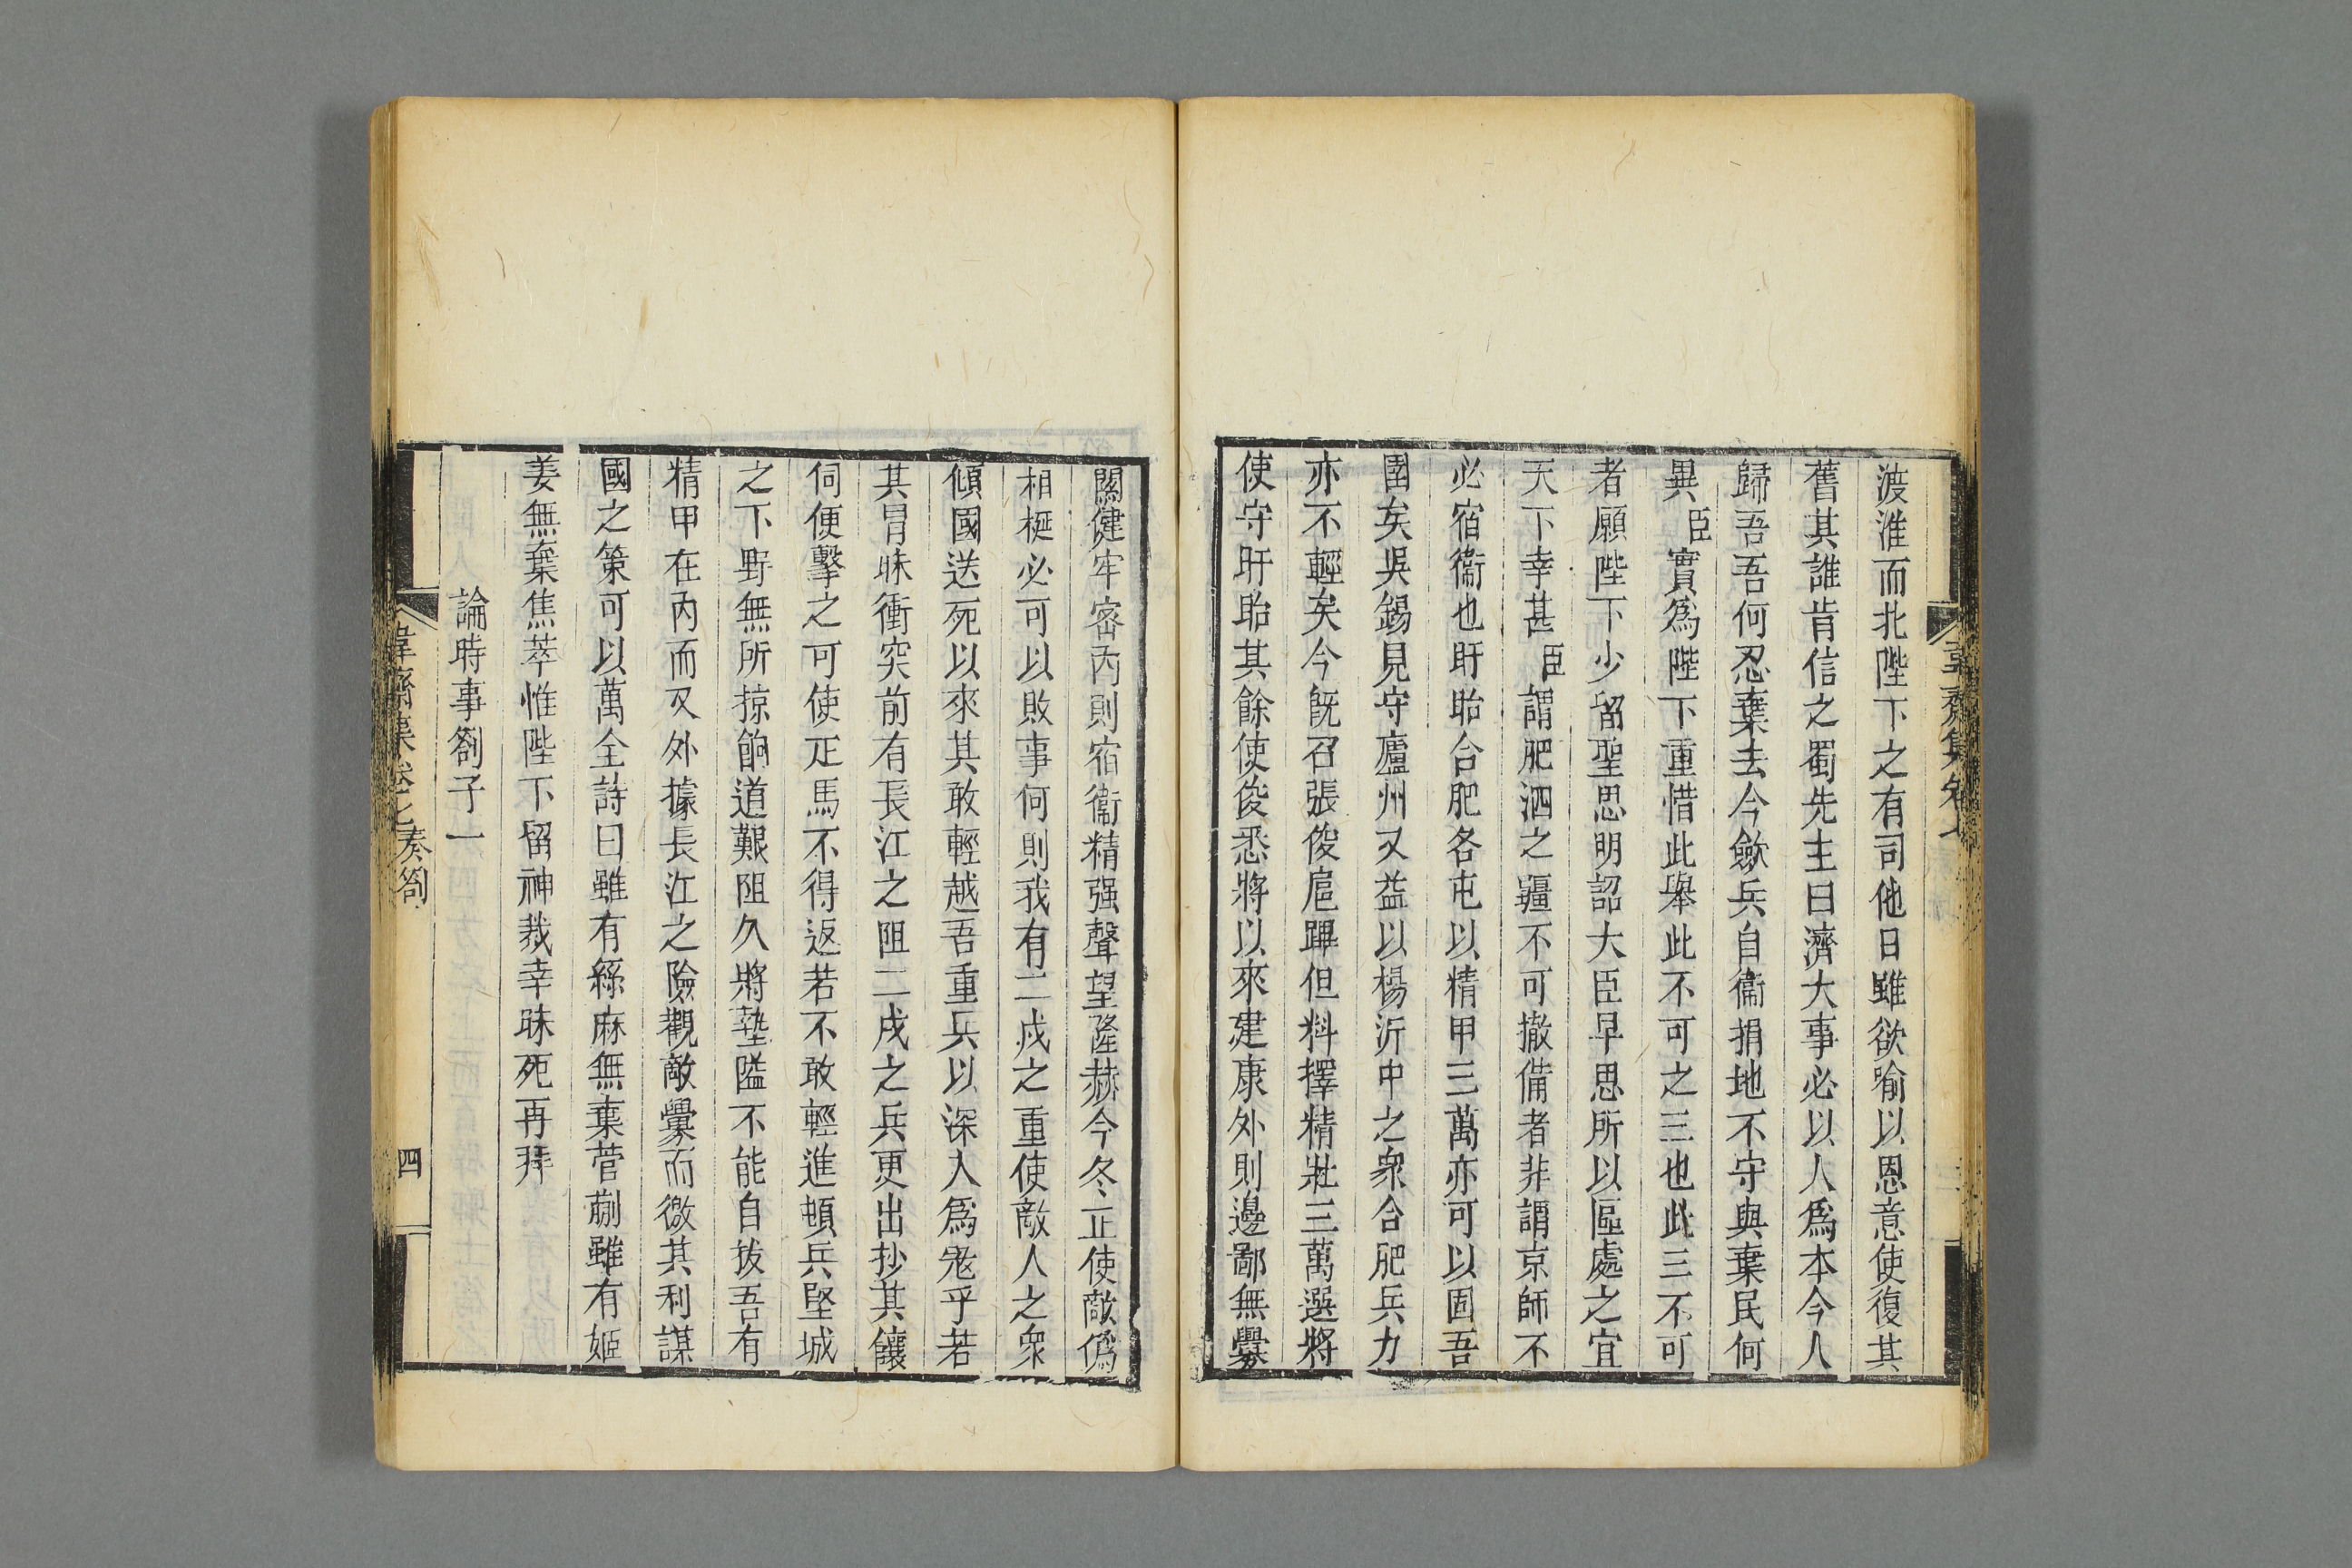 渡淮而北陛下之有司他日雖欲喻以恩意使復其
舊其誰肯信之蜀先主曰濟大事必以人爲本今人
歸吾吾何忍棄去今歛兵自衞捐地不守與棄民何
異臣實爲陛下重惜此舉此不可之三也此三不可
者願陛下少留聖思明詔大臣早思所以區處之宜
天下幸甚臣謂肥泗之疆不可撤備者非謂京師不
必宿衞也盱眙合肥各屯以精甲三萬亦可以固吾
圉矣吳錫見守廬州又益以楊沂中之衆合肥兵力
亦不輕矣今旣召張俊扈蹕但料擇精壯三萬選將
使守盱眙其餘使俊悉將以來建康外則邊鄙無釁
關健牢密內則宿衞精强聲望隆赫今冬正使敵僞
相梃必可以敗事何則我有二戍之重使敵人之衆
傾國送死以來其敢輕越吾重兵以深入爲宼乎若
其冒昧衝突前有長江之阻二戍之兵更出抄其饟
伺便擊之可使疋馬不得返若不敢輕進頓兵堅城
之下野無所掠餉道艱阻久將墊隘不能自拔吾有
精甲在內而又外據長江之險觀敵釁而徼其利謀
國之策可以萬全詩曰雖有絲麻無棄菅蒯雖有姬
姜無棄焦萃惟陛下留神裁幸昧死再拜
論時事劄子一
韋齋集卷七奏劄
四